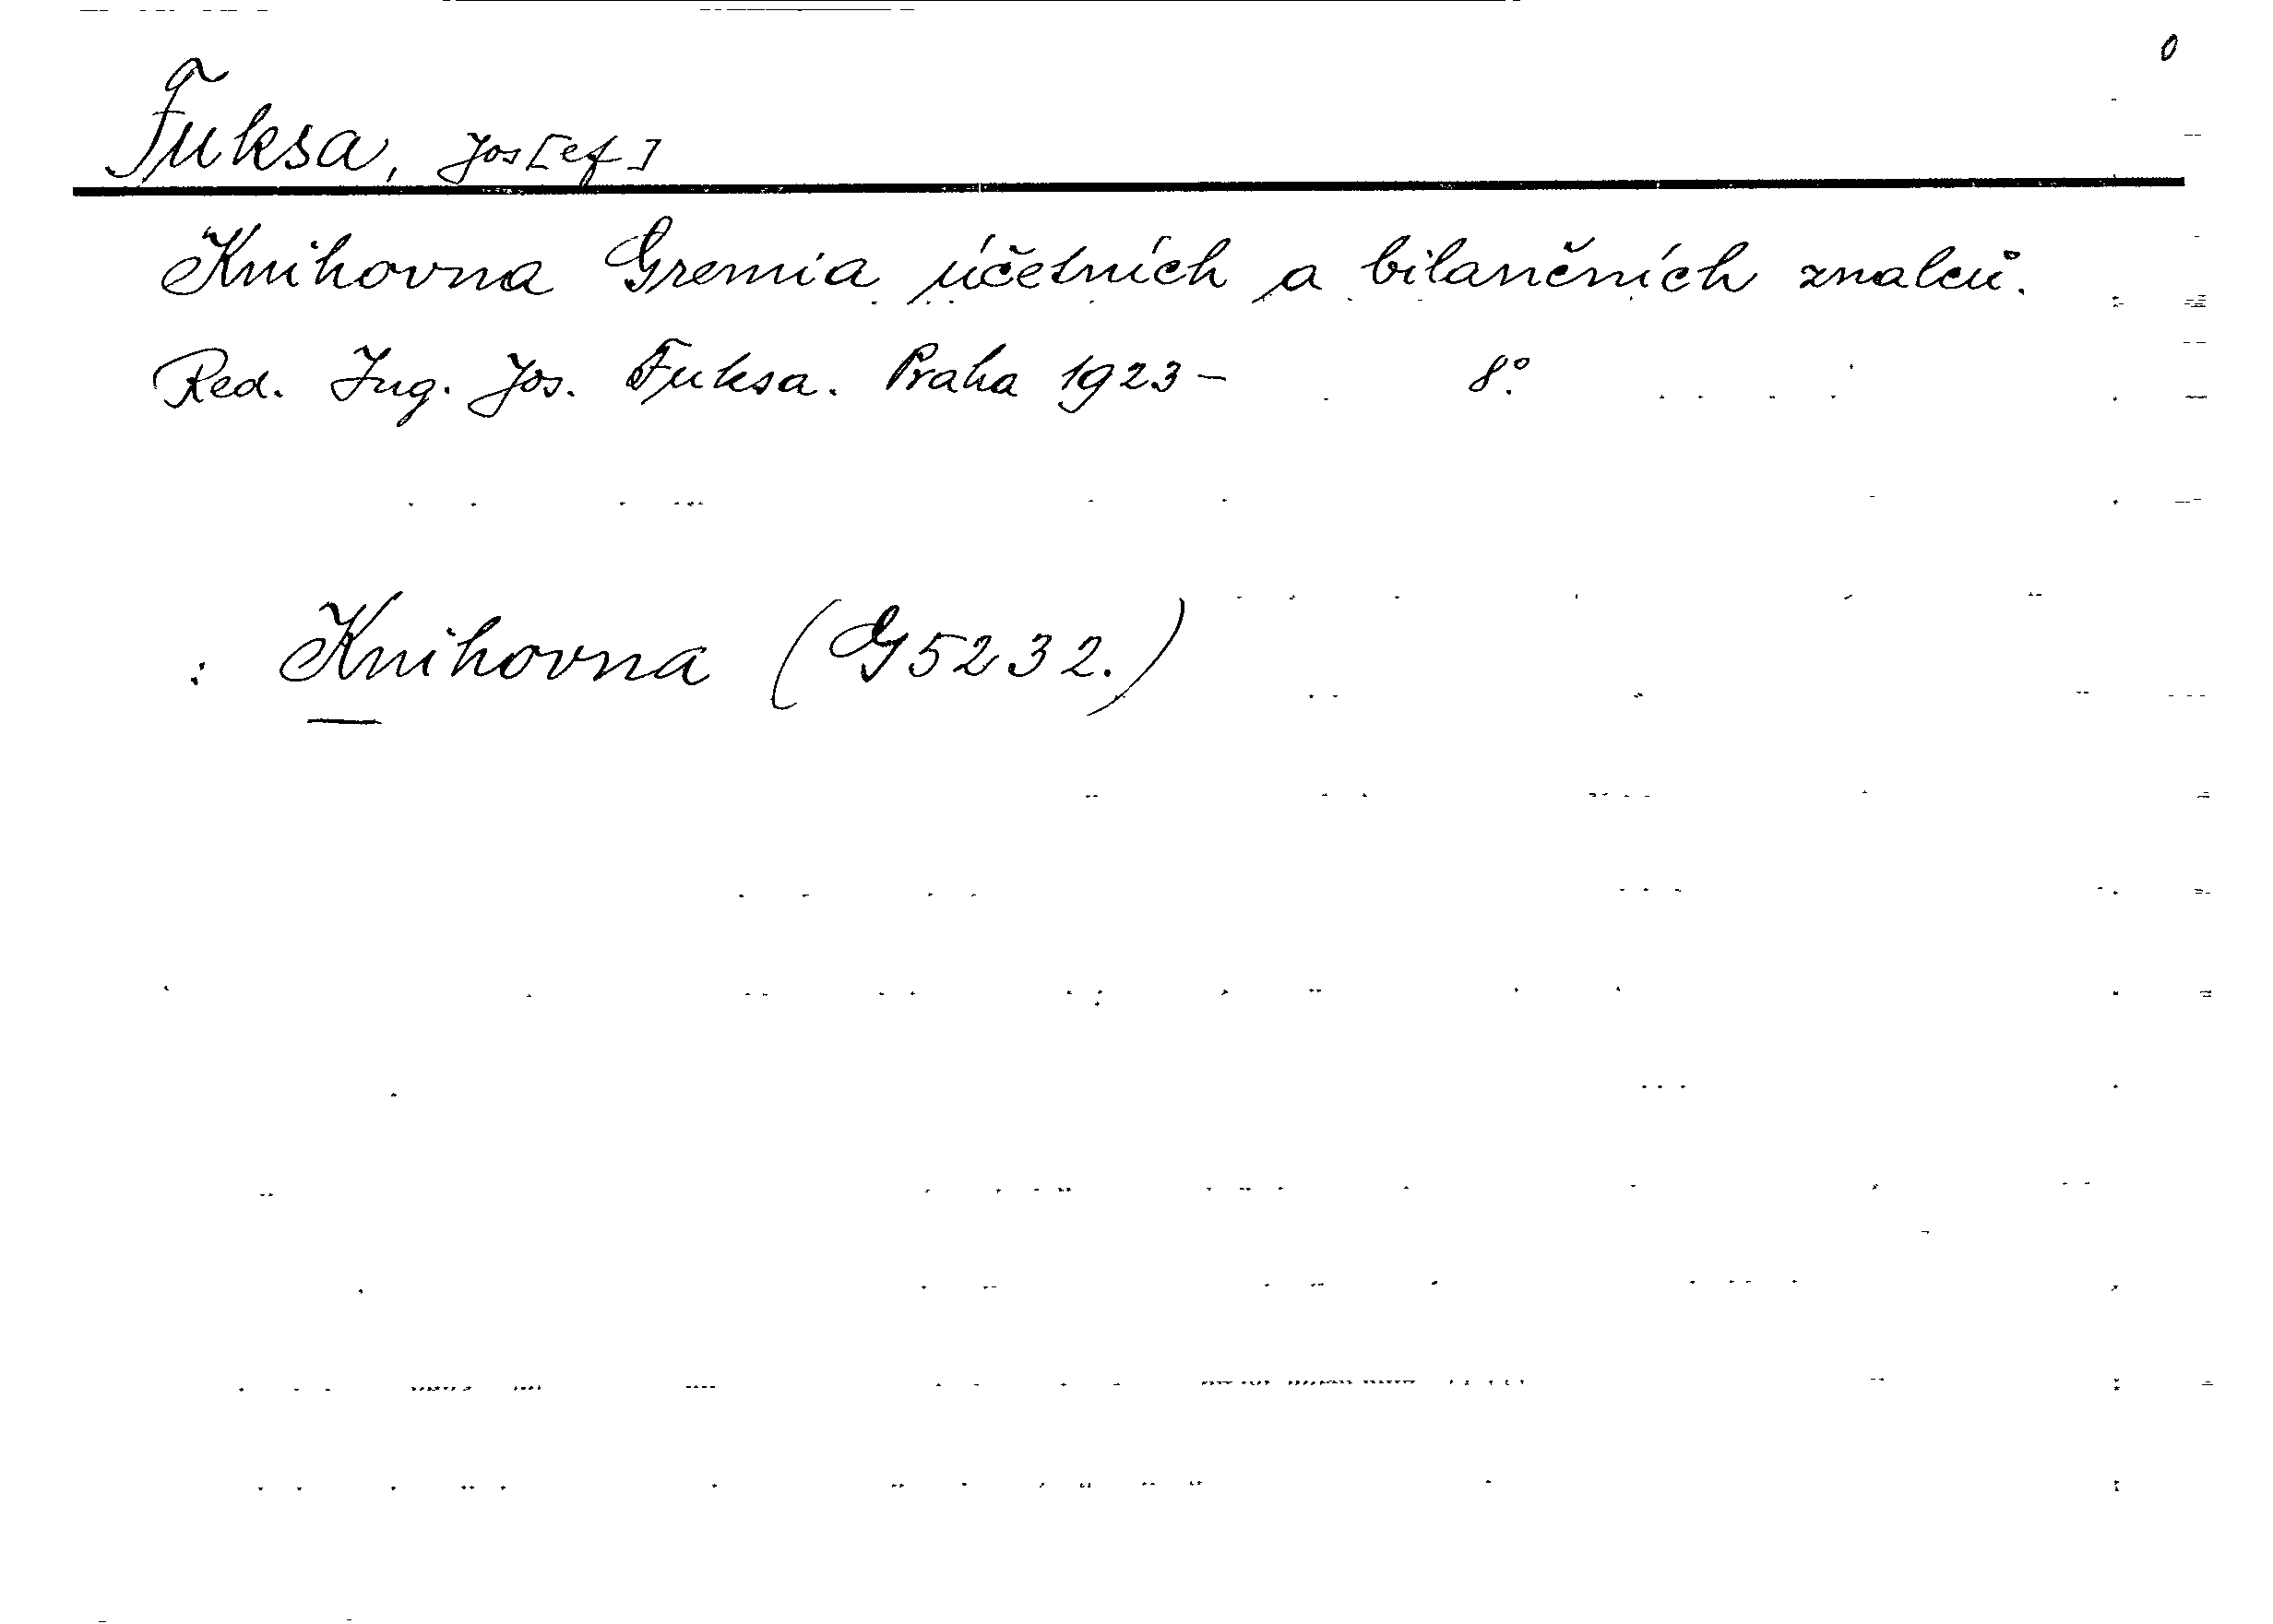 0
Fuksa, Jos[ef]
Knihovna Gremia účetních a bilančních znalců.
Red. Ing. Jos. Fuksa. Praha 1923- 8°.
: Knihovna (G 5232.)